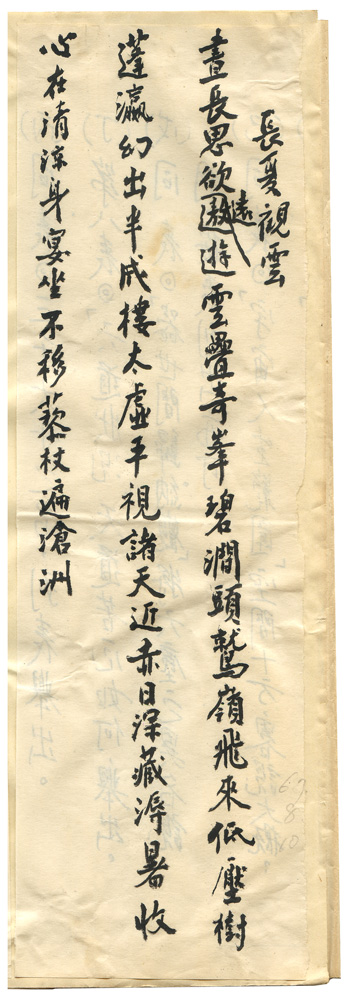 長夏觀雲
晝長思欲遠遊雲疊奇峯碧澗頭鷲嶺飛來低壓樹
蓬瀛幻出半成樓太虛平視諸天近赤日深藏溽暑收
心在清涼身宴坐不移藜杖遍滄洲
67.
8
10